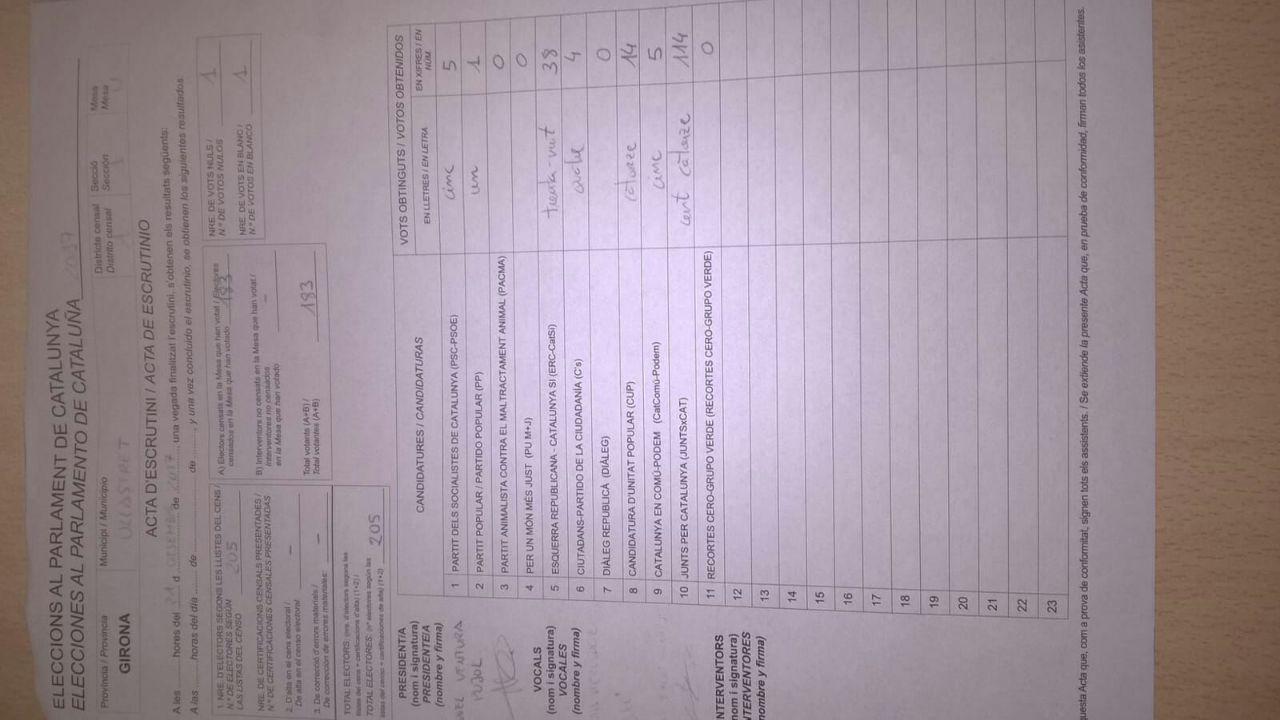 ELECCIONS AL PARLAMENT DE CATALUNYA
ELECCIONES AL PARLAMENTO DE CATALUÑA 2017
Província / Provincia
GIRONA
Municipi / Municipio
ULLASTRET
Districte censal
Distrito censal
Secció
Sección
Mesa
Mesa
U
ACTA D'ESCRUTINI / ACTA DE ESCRUTINIO
A les hores del 21 d DESEMBRE de 2017, una vegada finalitzat l'escrutini, s'obtenen els resultats següents:
A las horas del día de de , y una vez concluido el escrutinio, se obtienen los siguientes resultados
1. NRE. D'ELECTORS SEGONS LES LLISTES DEL CENS /
N.º DE ELECTORES SEGÚN
LAS LISTAS DEL CENSO 205
NRE. DE CERTIFICACIONS CENSALS PRESENTADES /
N.º DE CERTIFICACIONES CENSALES PRESENTADAS
2. D'alta en el cens electoral /
De alta en el censo electoral –
3. De correcció d'errors materials /
De corrección de errores materiales: –
TOTAL ELECTORS: (nre. d'electors segons les
llistes del cens + certificacions d'alta) (1+2) /
TOTAL ELECTORES: (nº electores según las
listas del censo + certificaciones de alta) (1+2) 205
A) Electors censats en la Mesa que han votat / Electores
censados en la Mesa que han votado 183
B) Interventors no censats en la Mesa que han votat /
Interventores no censados
en la Mesa que han votado –
Total votants (A+B) /
Total votantes (A+B) 183
NRE. DE VOTS NULS /
N.º DE VOTOS NULOS 1
NRE. DE VOTS EN BLANC /
N.º DE VOTOS EN BLANCO 1
PRESIDENT/A
(nom i signatura)
PRESIDENTE/A
(nombre y firma)
VENTURA
PUJOL
VOCALS
(nom i signatura)
VOCALES
(nombre y firma)
INTERVENTORS
(nom i signatura)
INTERVENTORES
(nombre y firma)
CANDIDATURES / CANDIDATURAS
VOTS OBTINGUTS / VOTOS OBTENIDOS
EN LLETRES / EN LETRA
EN XIFRES / EN
NÚM.
1 PARTIT DELS SOCIALISTES DE CATALUNYA (PSC-PSOE) cinc 5
2 PARTIT POPULAR / PARTIDO POPULAR (PP) un 1
3 PARTIT ANIMALISTA CONTRA EL MALTRACTAMENT ANIMAL (PACMA) 0
4 PER UN MÓN MÉS JUST (PU M+J) 0
5 ESQUERRA REPUBLICANA - CATALUNYA SÍ (ERC-CatSí) trenta-vuit 38
6 CIUTADANS-PARTIDO DE LA CIUDADANÍA (C's) 4
7 DIÀLEG REPUBLICÀ (DIÀLEG) 0
8 CANDIDATURA D'UNITAT POPULAR (CUP) catorze 14
9 CATALUNYA EN COMÚ-PODEM (CatComú-Podem) cinc 5
10 JUNTS PER CATALUNYA (JUNTSxCAT) cent catorze 114
11 RECORTES CERO-GRUPO VERDE (RECORTES CERO-GRUPO VERDE) 0
12
13
14
15
16
17
18
19
20
21
22
23
questa Acta que, com a prova de conformitat, signen tots els assistents. / Se extiende la presente Acta que, en prueba de conformidad, firman todos los asistentes.